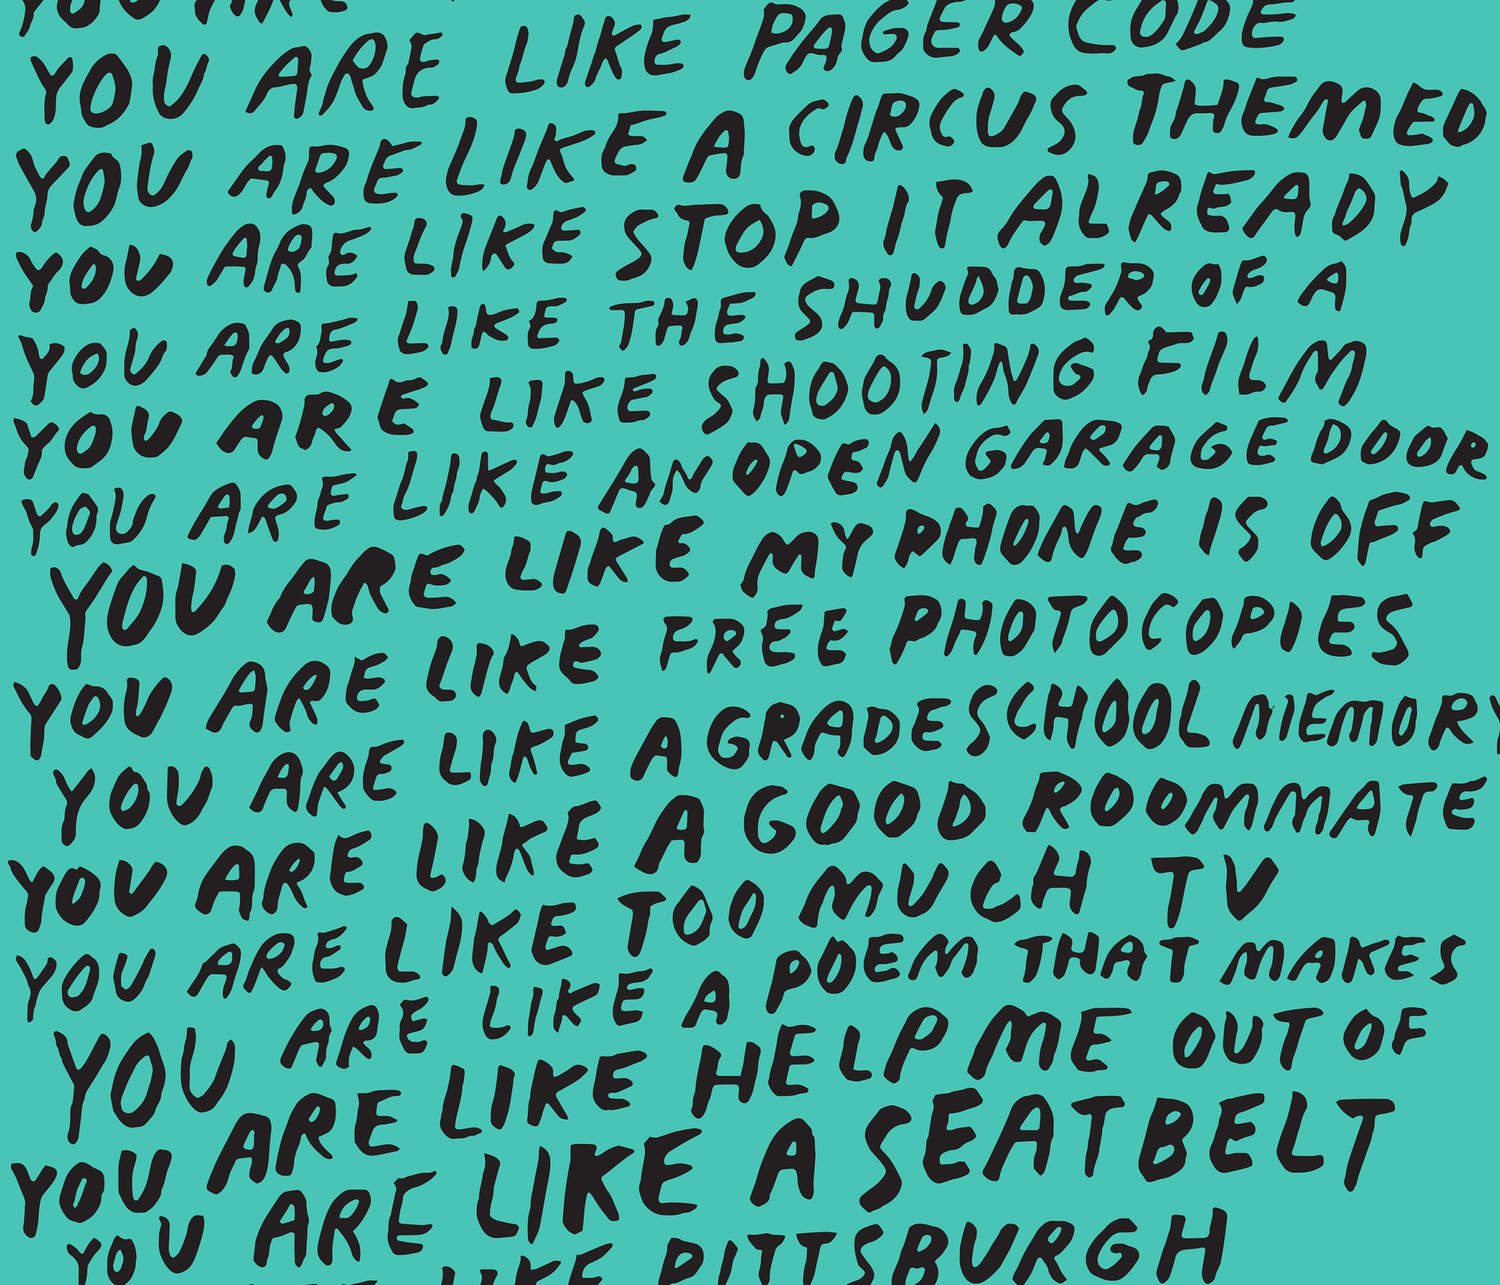 YOU ARE
YOU ARE LIKE PAGER CODE
YOU ARE LIKE A CIRCUS THEMED
YOU ARE LIKE STOP IT ALREADY
YOU ARE LIKE THE SHUDDER OF A
YOU ARE LIKE SHOOTING FILM
YOU ARE LIKE AN OPEN GARAGE DOOR
YOU ARE LIKE MY PHONE IS OFF
YOU ARE LIKE FREE PHOTOCOPIES
YOU ARE LIKE A GRADE SCHOOL MEMORY
YOU ARE LIKE A GOOD ROOMMATE
YOU ARE LIKE TOO MUCH TV
YOU ARE LIKE A POEM THAT MAKES
YOU ARE LIKE HELP ME OUT OF
YOU ARE LIKE A SEATBELT
YOU ARE LIKE PITTSBURGH